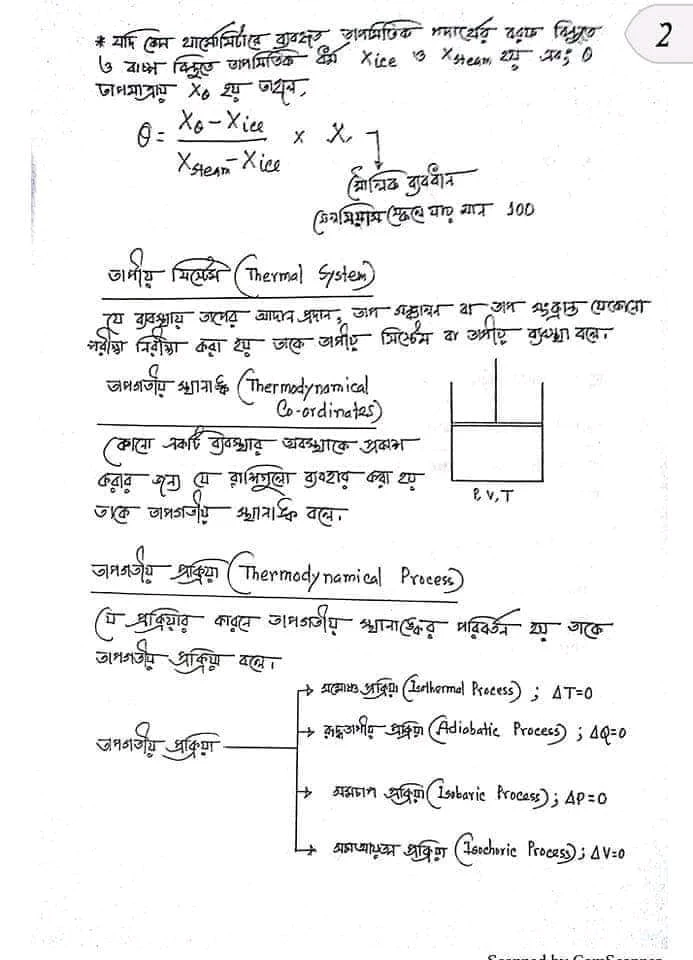 2
* যদি কোন থার্মোমিটারে ব্যবহৃত তাপমিতিক পদার্থের বরফ বিন্দুতে
ও বাষ্প বিন্দুতে তাপমিতিক ধর্ম Xice ও Xsteam হয় এবং θ
তাপমাত্রায় Xθ হয় তাহলে,
θ = (Xθ - Xice) / (Xsteam - Xice) × X
মৌলিক ব্যবধান
সেলসিয়াস স্কেলে যার মান 100
তাপীয় সিস্টেম (Thermal System)
যে ব্যবস্থায় তাপের আদান প্রদান, তাপ সঞ্চালন বা তাপ সংক্রান্ত যেকোনো
পরীক্ষা নিরীক্ষা করা হয় তাকে তাপীয় সিস্টেম বা তাপীয় ব্যবস্থা বলে।
তাপগতীয় স্থানাঙ্ক (Thermodynamical
Co-ordinates)
কোনো একটি ব্যবস্থার অবস্থাকে প্রকাশ
করার জন্য যে রাশিগুলো ব্যবহার করা হয়
তাকে তাপগতীয় স্থানাঙ্ক বলে।
P, V, T
তাপগতীয় প্রক্রিয়া (Thermodynamical Process)
যে প্রক্রিয়ার কারনে তাপগতীয় স্থানাঙ্কের পরিবর্তন হয় তাকে
তাপগতীয় প্রক্রিয়া বলে।
তাপগতীয় প্রক্রিয়া
সমোষ্ণ প্রক্রিয়া (Isothermal Process) ; ΔT=0
রূদ্ধতাপীয় প্রক্রিয়া (Adiobatic Process) ; ΔQ=0
সমচাপ প্রক্রিয়া (Isobaric Process) ; ΔP=0
সমআয়তন প্রক্রিয়া (Isochoric Process) ; ΔV=0